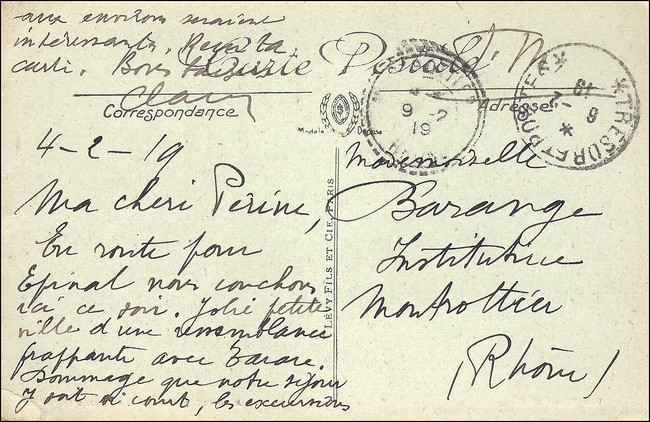 aux environs seraient
intéressants. Reçu ta
carte. Bons baisers
Claire
Carte Postale
F. M.
Correspondance
Adresse
Modèle Déposé
9-2
19
TRESOR ET POSTES
6-2
19
4-2-19
Ma cheri Périne,
En route pour
Epinal nous couchons
ici ce soir. Jolie petite
ville d'une ressemblance
frappante avec Tarare.
Dommage que notre séjour
y soit si court, les excursions
LÉVY FILS ET CIE, PARIS
Mademoiselle
Barange
Institutrice
Montrottier
(Rhône)